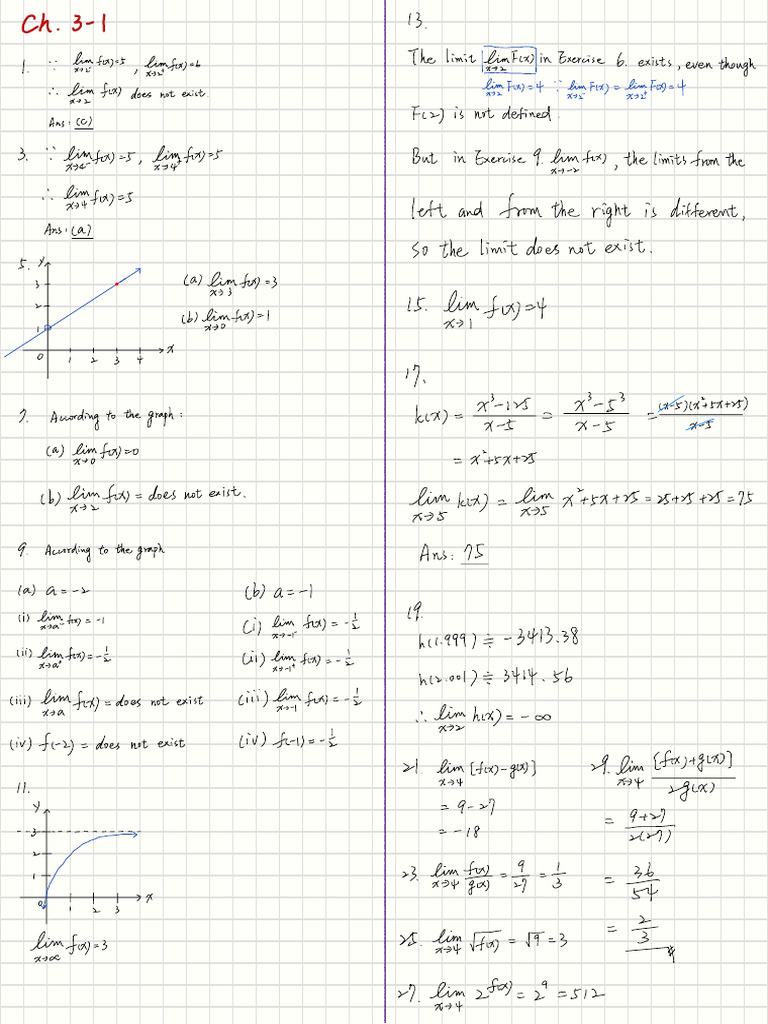 Ch. 3-1
1. ∵ lim x→2⁻ f(x)=5 , lim x→2⁺ f(x)=6
∴ lim x→2 f(x) does not exist.
Ans: (c)
3. ∵ lim x→4⁻ f(x)=5 , lim x→4⁺ f(x)=5
∴ lim x→4 f(x)=5
Ans: (a)
5. y
3
2
1
0 1 2 3 4 x
(a) lim x→3 f(x)=3
(b) lim x→0 f(x)=1
7. According to the graph:
(a) lim x→0 f(x)=0
(b) lim x→2 f(x) = does not exist.
9. According to the graph
(a) a=-2
(i) lim x→a⁻ f(x) = -1
(ii) lim x→a⁺ f(x) = -1/2
(iii) lim x→a f(x) = does not exist
(iv) f(-2) = does not exist
(b) a=-1
(i) lim x→-1⁻ f(x) = -1/2
(ii) lim x→-1⁺ f(x) = -1/2
(iii) lim x→-1 f(x) = -1/2
(iv) f(-1) = -1/2
11.
y
3
2
1
0 1 2 3 x
lim x→∞ f(x)=3
13.
The limit lim x→2 F(x) in Exercise 6. exists, even though
lim x→2 F(x)=4 ∵ lim x→2⁻ F(x) = lim x→2⁺ F(x) = 4
F(2) is not defined.
But in Exercise 9. lim x→-2 f(x), the limits from the
left and from the right is different,
so the limit does not exist.
15. lim x→1 f(x)=4
17.
k(x) = (x³-125)/(x-5) = (x³-5³)/(x-5) = (x-5)(x²+5x+25)/(x-5)
= x²+5x+25
lim x→5 k(x) = lim x→5 x²+5x+25 = 25+25+25 = 75
Ans: 75
19.
h(1.999) ≒ -3413.38
h(2.001) ≒ 3414.56
∴ lim x→2 h(x) = -∞
21. lim x→4 [f(x)-g(x)]
= 9-27
= -18
23. lim x→4 f(x)/g(x) = 9/27 = 1/3
25. lim x→4 √f(x) = √9 = 3
27. lim x→4 2^f(x) = 2⁹ = 512
29. lim x→4 [f(x)+g(x)]/2g(x)
= (9+27)/2(27)
= 36/54
= 2/3